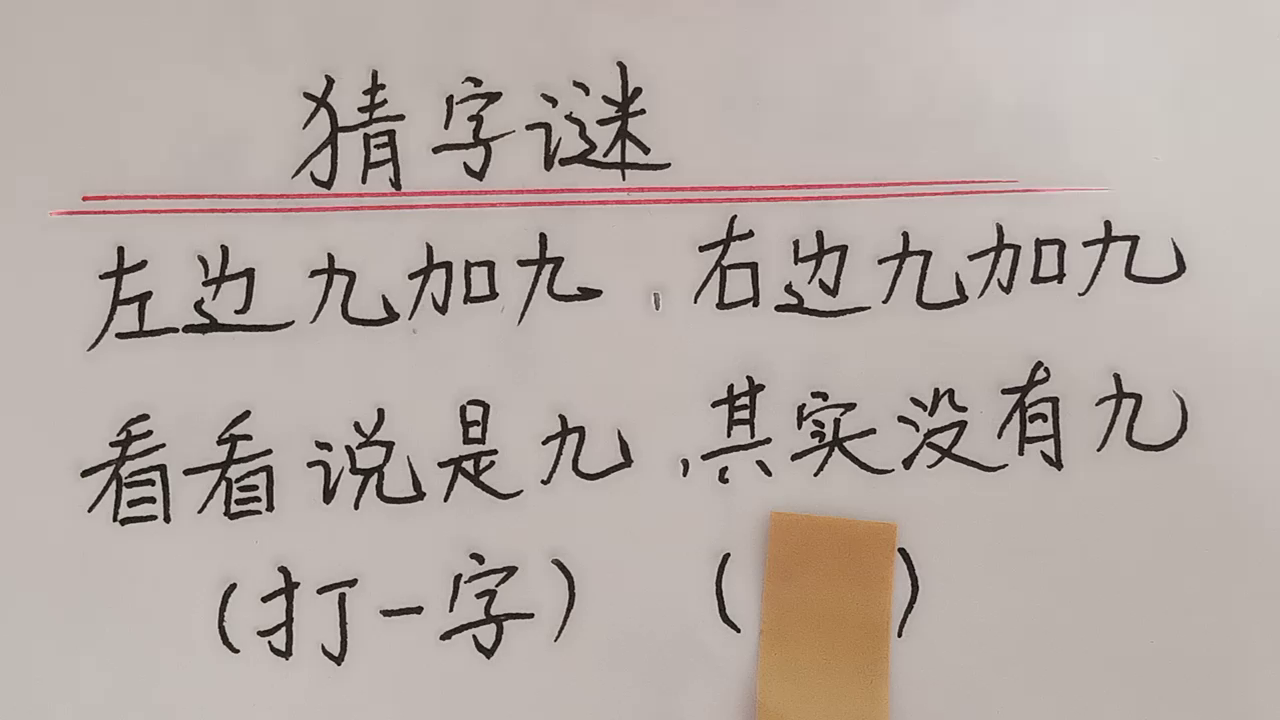 猜字谜
左边九加九，右边九加九
看看说是九，其实没有九
(打一字) ( )